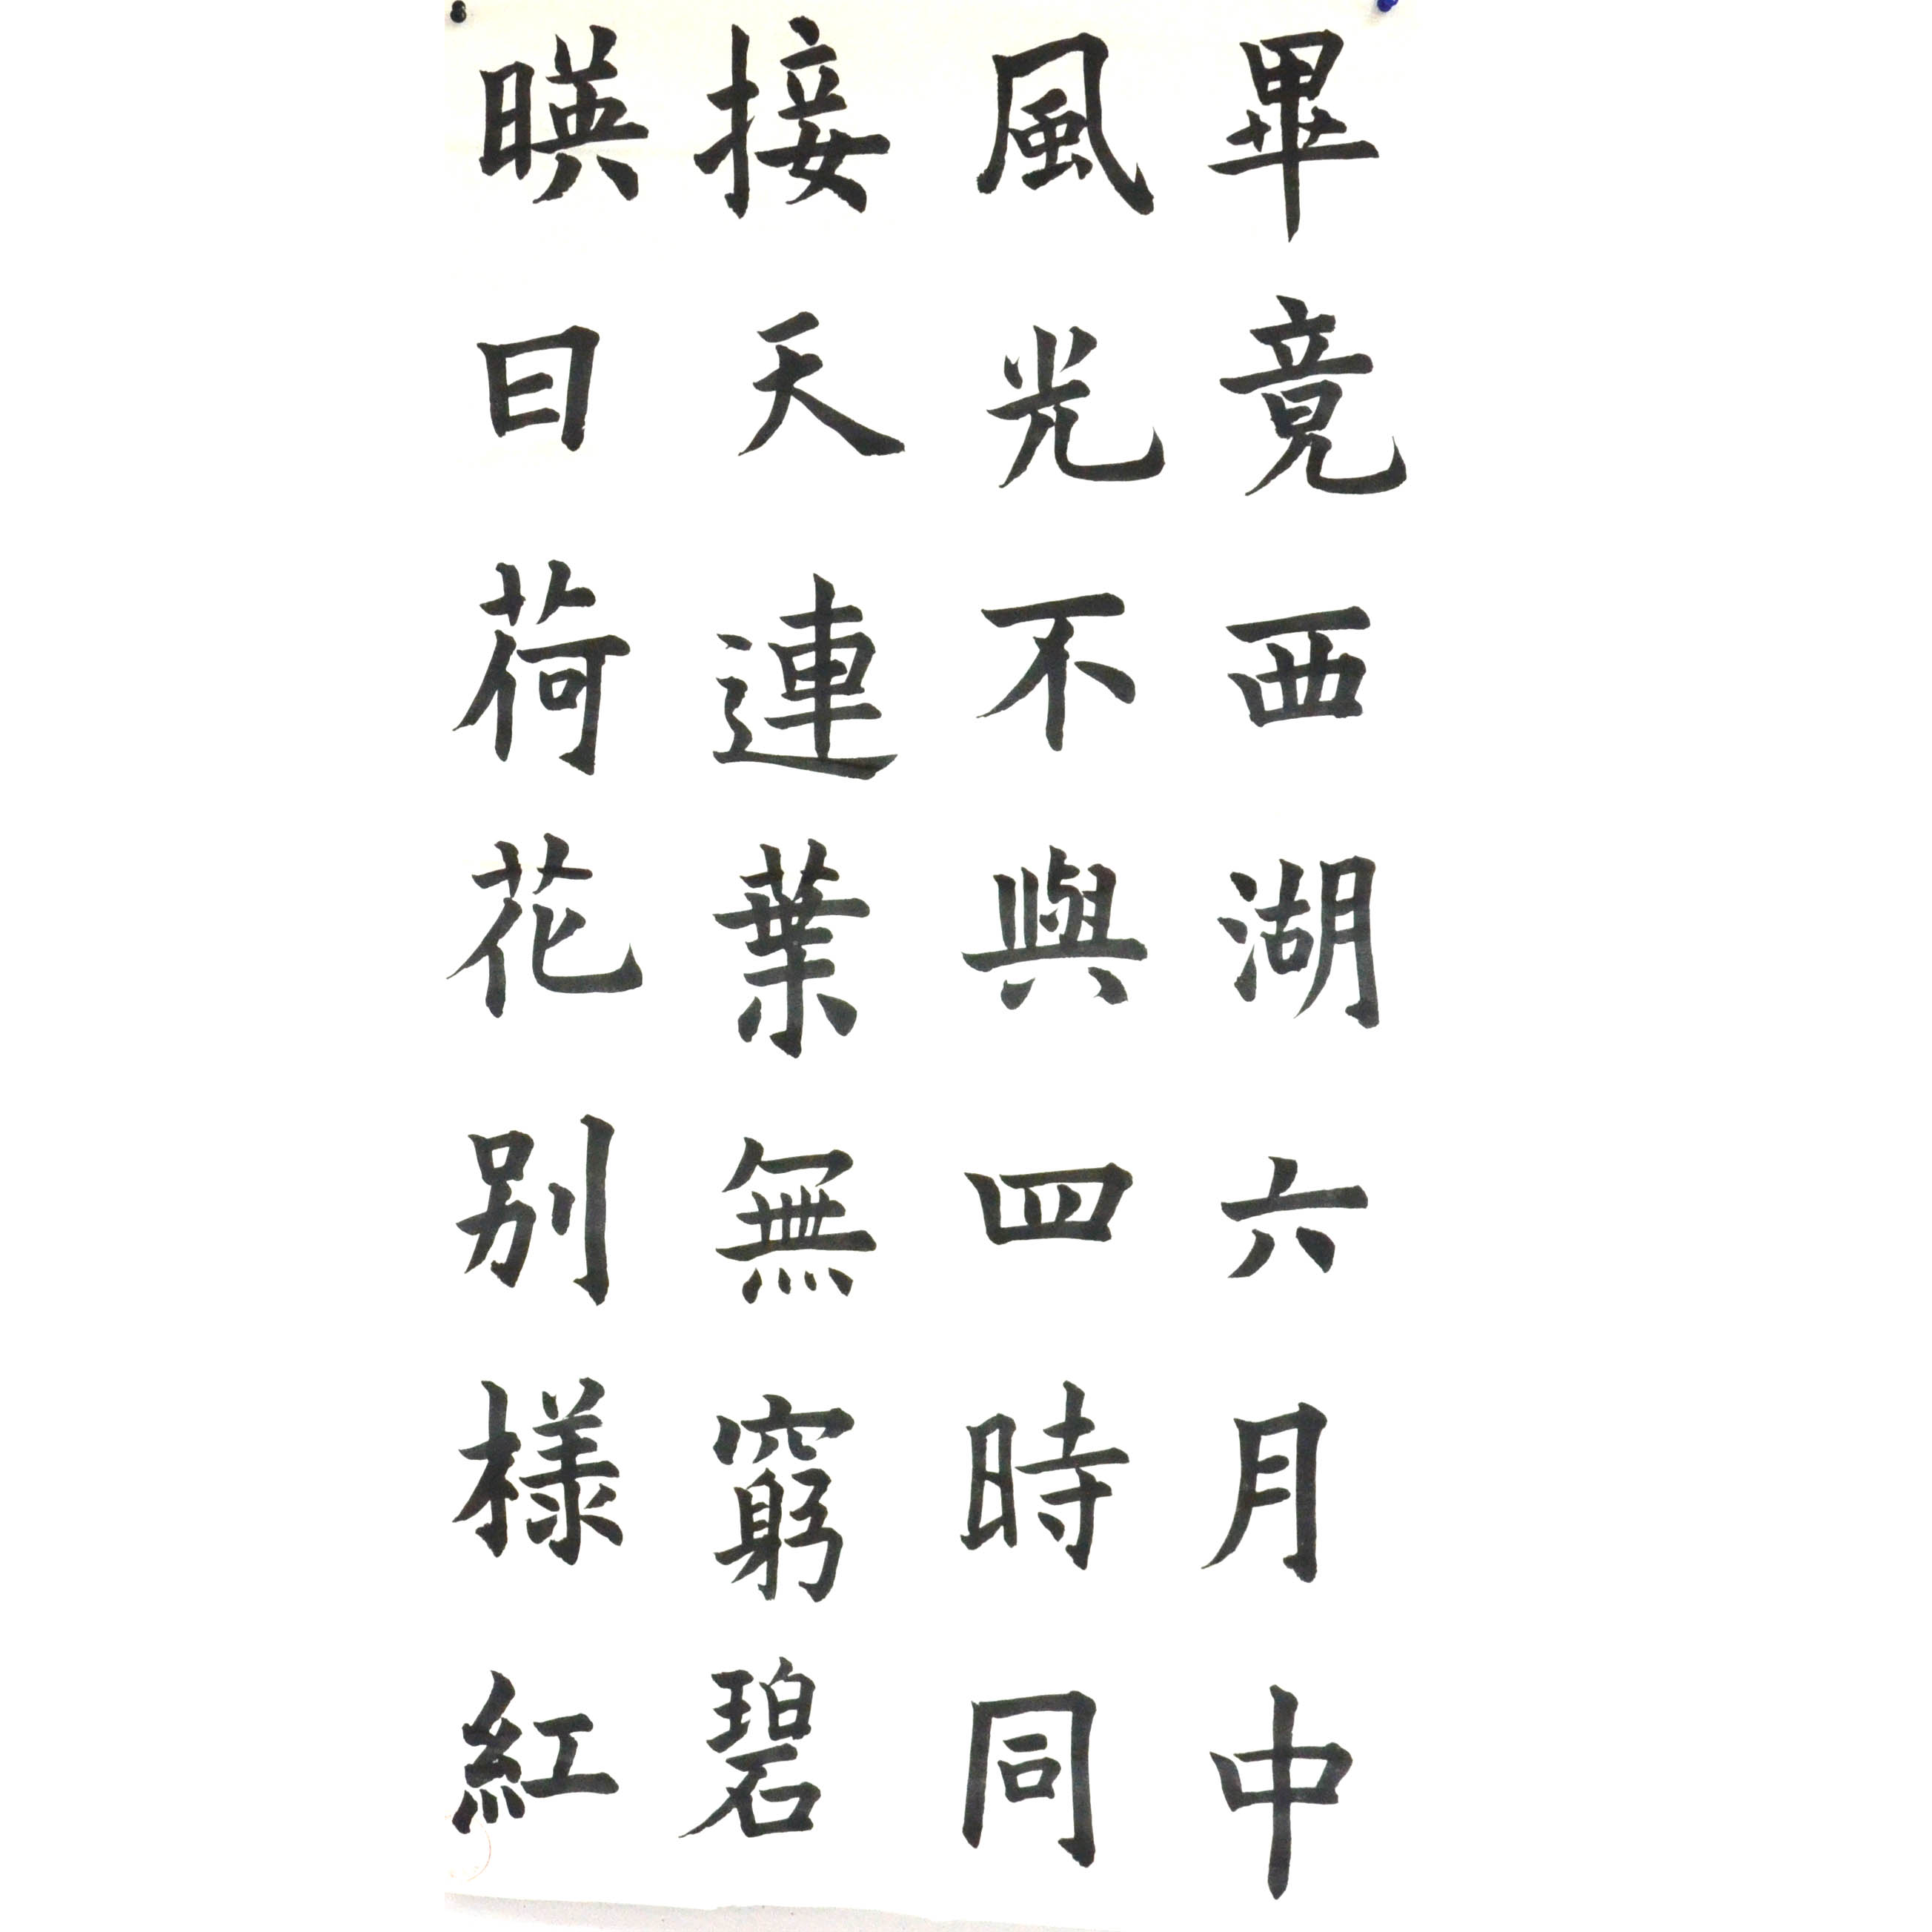 畢竟西湖六月中
風光不與四時同
接天連葉無窮碧
暎日荷花别樣紅